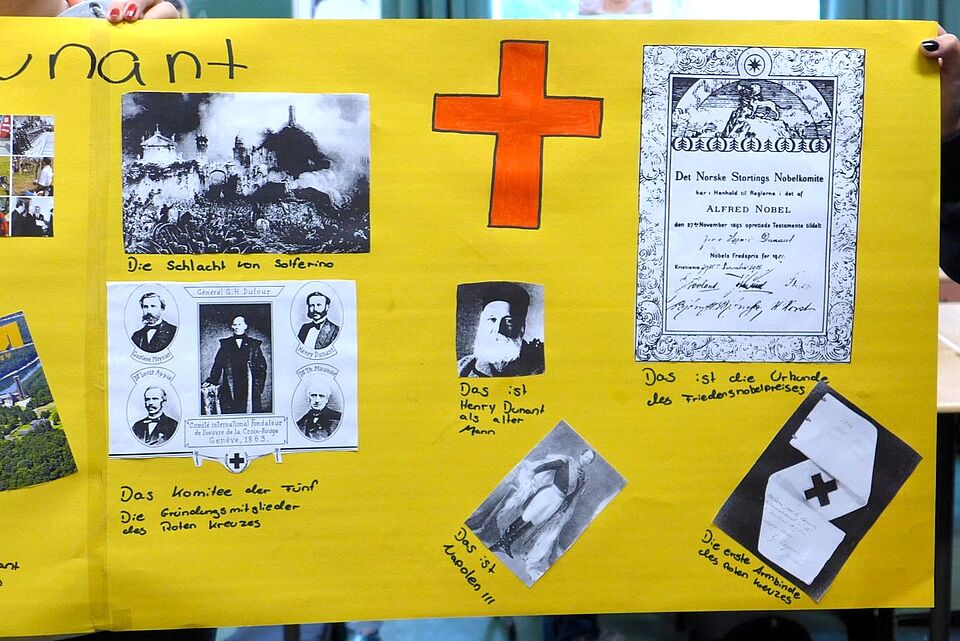 unant
Die Schlacht von Solferino
Général G.H. Dufour
Gustave Moynier
Henry Dunant
Dr Louis Appia
Dr Th. Maunoir
"Comité international fondateur"
de l'oeuvre de la Croix-Rouge
Genève, 1863.
Das Komitee der Fünf
Die Gründungsmitglieder
des Roten Kreuzes
Das ist
Henry Dunant
als alter
Mann
Das ist
Napolen III
Det Norske Stortings Nobelkomite
har i Henhold til Reglerne i det af
ALFRED NOBEL
den 27de November 1895 oprettede Testamente tildelt
Henri Dunant
Nobels Fredspris for 1901.
Kristiania
Das ist die Urkunde
des Friedensnobelpreises
Die erste Armbinde
des Roten Kreuzes